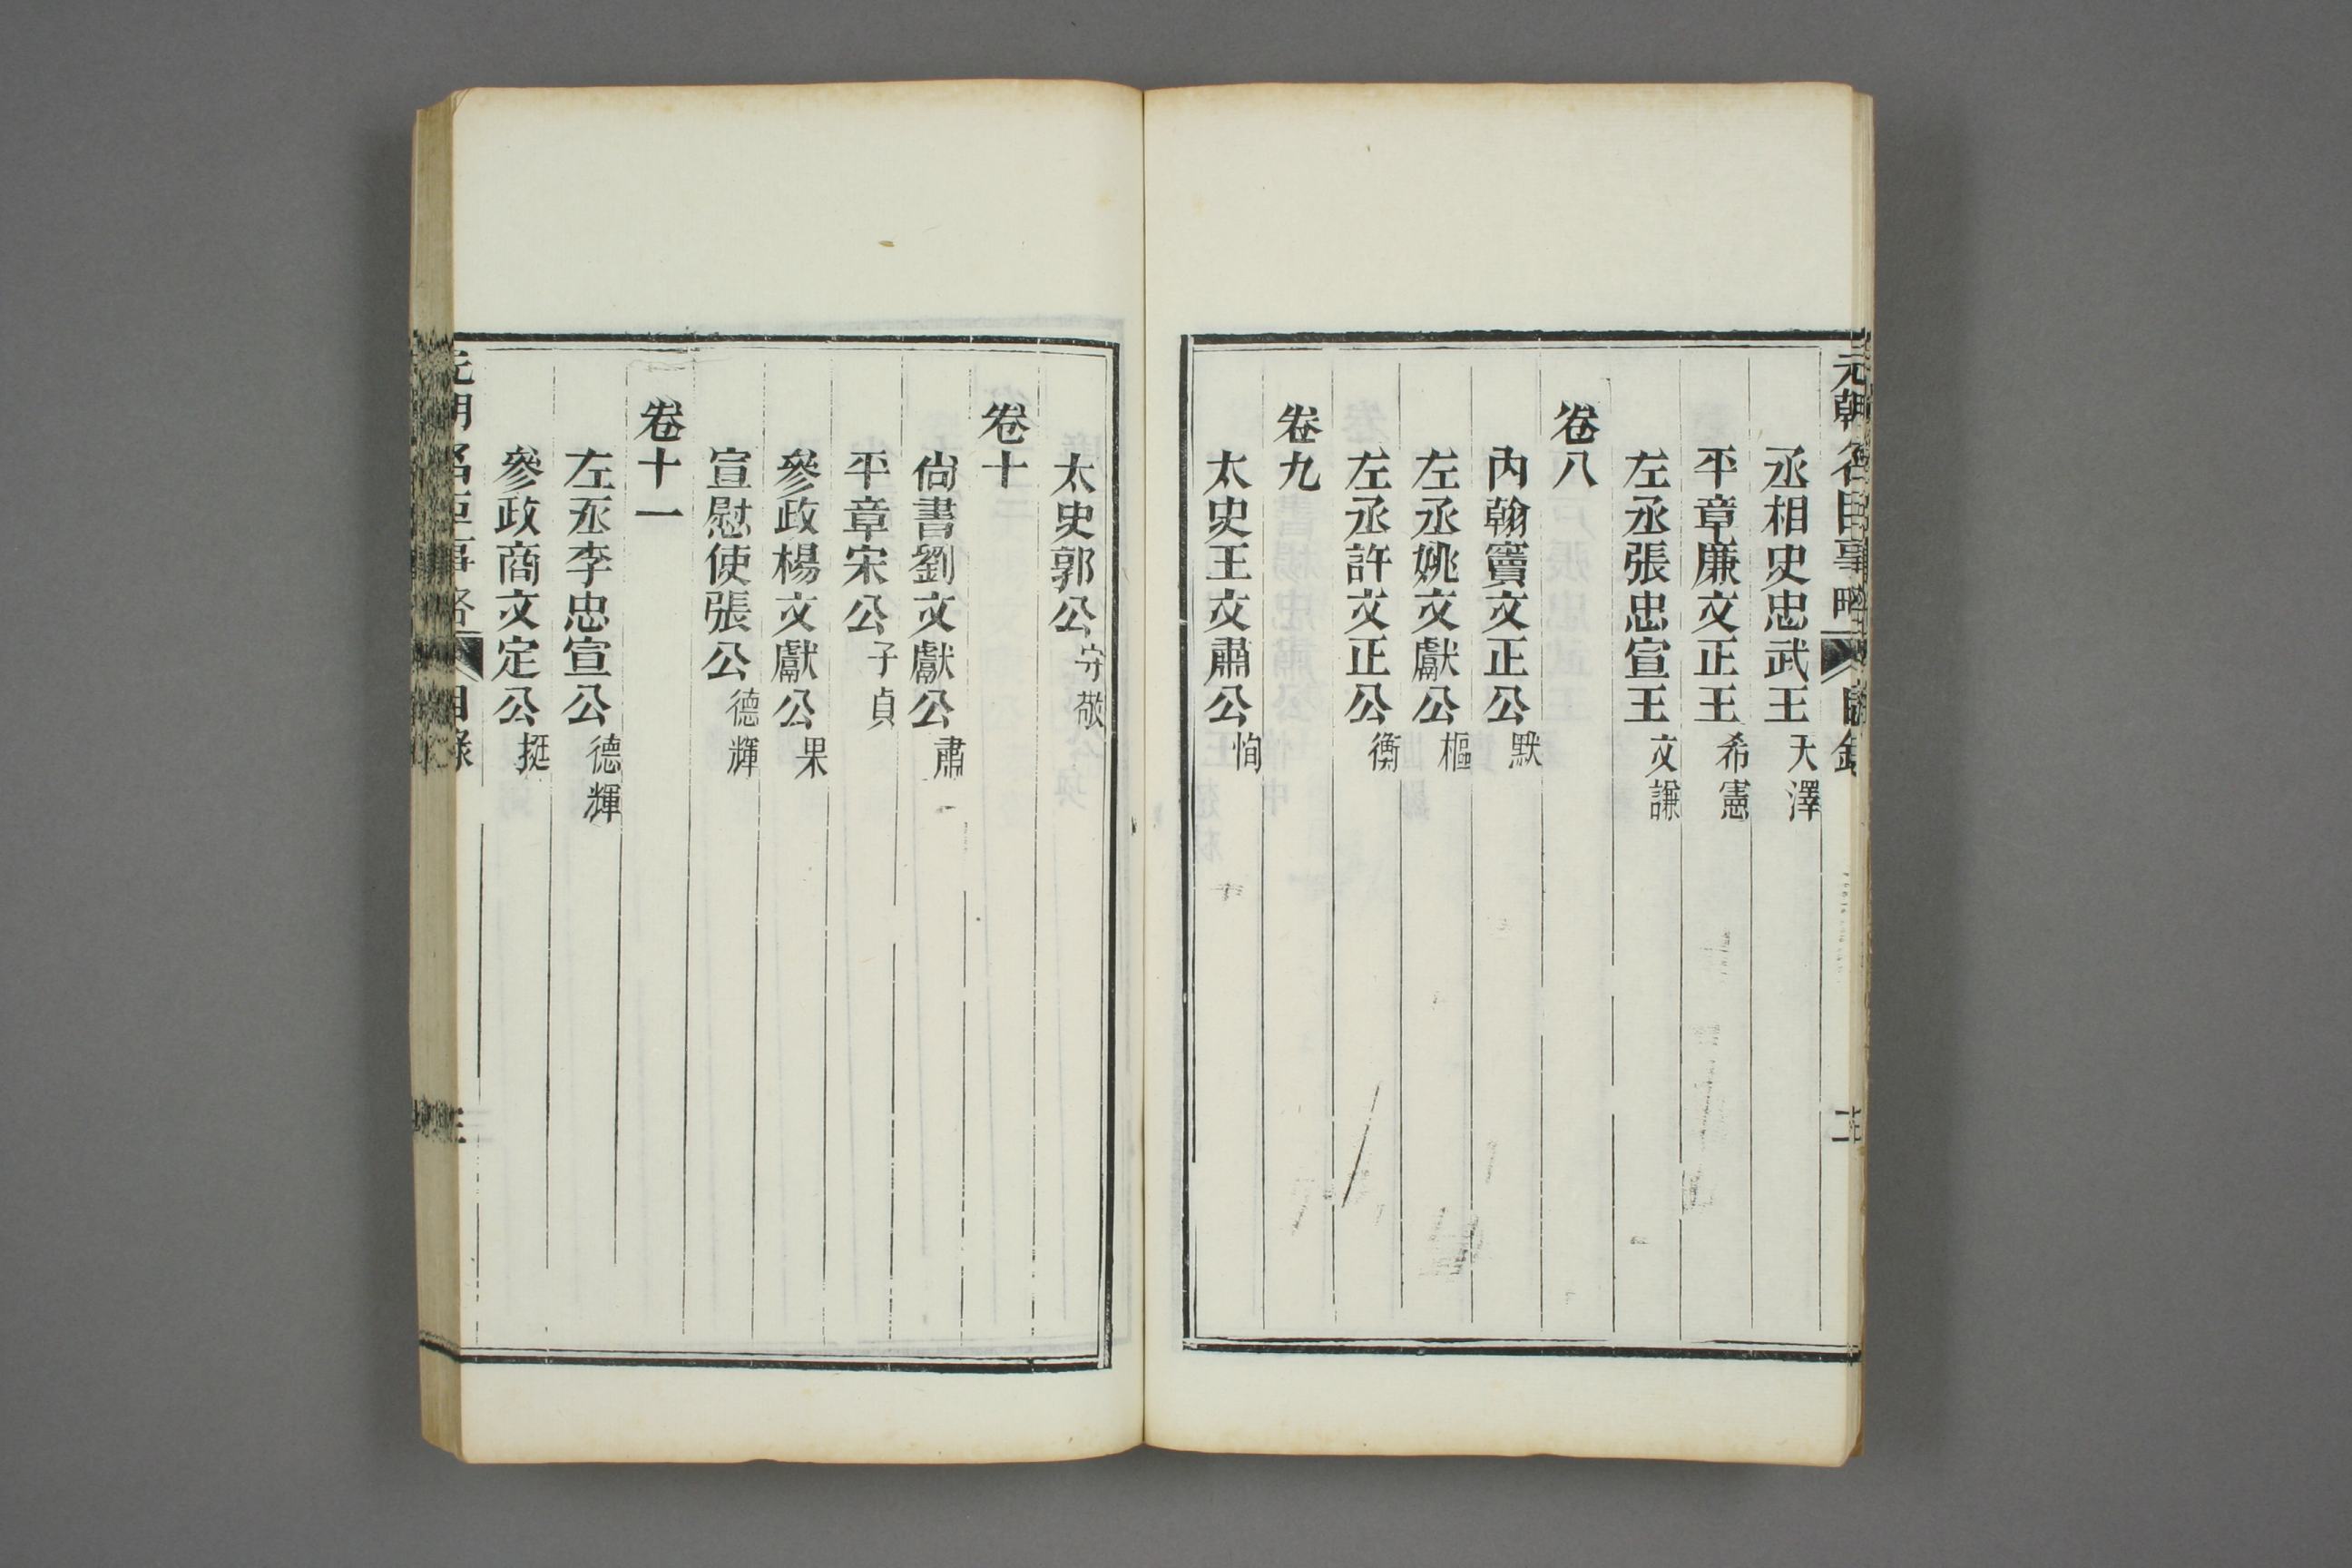 元朝名臣事略 目錄 二
丞相史忠武王天澤
平章廉文正王希憲
左丞張忠宣王文謙
卷八
內翰竇文正公默
左丞姚文獻公樞
左丞許文正公衡
卷九
太史王文肅公恂
太史郭公守敬
卷十
尙書劉文獻公肅
平章宋公子貞
參政楊文獻公果
宣慰使張公德輝
卷十一
左丞李忠宣公德輝
參政商文定公挺
元朝名臣事略 目錄 三